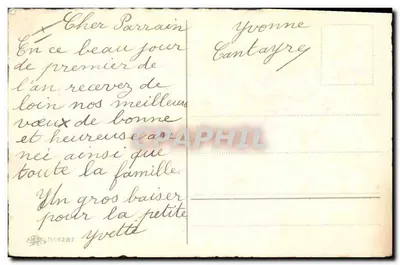 Cher Parrain
En ce beau jour
de premier de
l'an recevez de
loin nos meilleurs
vœux de bonne
et heureuse an
nei ainsi que
toute la famille
Un gros baiser
pour la petite
Yvette
Yvonne
Cantayre
CPAPHIL